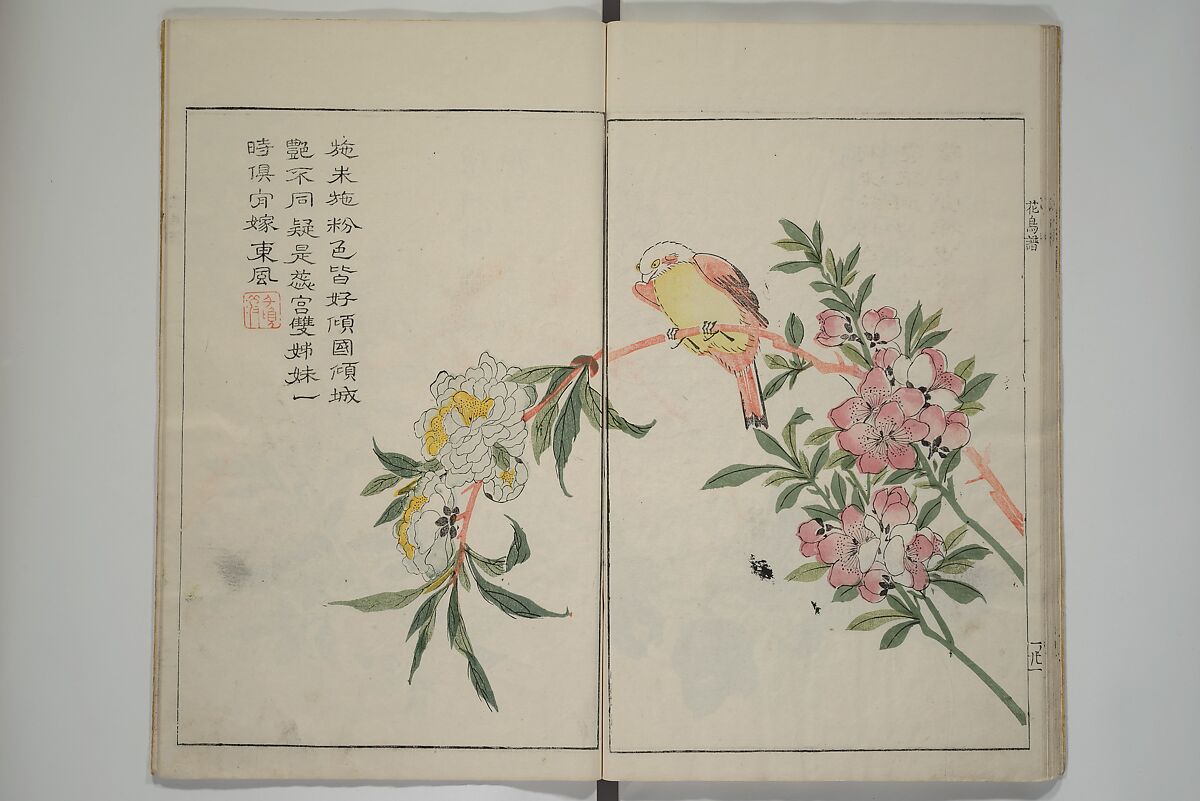 花鳥譜
施朱施粉色皆好傾國傾城
艷不同疑是蕊宮雙姊妹一
時俱肎嫁東風